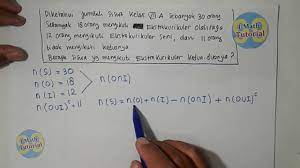 Diketahui jumlah siswa kelas VII A sebanyak 30 orang
Sebanyak 18 orang mengikuti Ekstrakurikuler olahraga
12 orang mengikuti Ekstrakurikuler seni, dan 11 orang
tidak mengikuti keduanya
Berapa siswa yg mengikuti Ekstrakurikuler keduanya
n(S) = 30
n(O) = 18
n(I) = 12
n(OUI)ᶜ = 11
n(O∩I)
n(S) = n(O) + n(I) - n(O∩I) + n(OUI)ᶜ
Math
Tutorial
Math
Tutorial